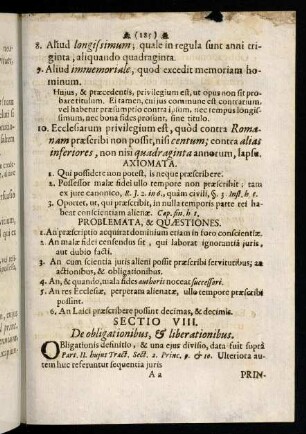 (185)
8. Aliud longissimum; quale in regula sunt anni triginta, aliquando quadraginta.
9. Aliud immemoriale, quod excedit memoriam hominum.
Hujus, & præcedentis, privilegium est, ut opus non sit probare titulum. Et tamen, cui jus commune est contrarium, vel habetur præsumptio contra ipsum, nec tempus longissimum, nec bona fides prosunt, sine titulo.
10. Ecclesiarum privilegium est, quòd contra Romanam præscribi non possit, nisi centum; contra alias inferiores, non nisi quadraginta annorum, lapsu.
AXIOMATA.
1. Qui possidere non potest, is neque præscribere.
2. Possessor malæ fidei ullo tempore non præscribit, tam ex jure canonico, R. J. 2. in 6, quàm civili, §. 3. Inst. h. t.
3. Oportet, ut, qui præscribit, in nulla temporis parte rei habeat conscientiam alienæ. Cap. fin. h. t,
PROBLEMATA, & QUÆSTIONES.
1. An præscriptio acquirat dominium etiam in foro conscientiæ.
2. An malæ fidei censendus sit, qui laborat ignorantiâ juris, aut dubio facti.
3. An cum scientia juris alieni possit præscribi servitutibus; actionibus, & obligationibus.
4. An, & quando, mala fides authoris noceat successori.
5. An res Ecclesiæ, perperam alienatæ, ullo tempore præscribi possint.
6. An Laici præscribere possint decimas, & decimis.
SECTIO VIII.
De obligationibus, & liberationibus.
OBligationis definitio, & una ejus divisio, data fuit suprà
Part. II. hujus Tract. Sect. 2. Princ. 9. & 10. Ulteriora autem huc referuntur sequentia juris
A a PRIN-